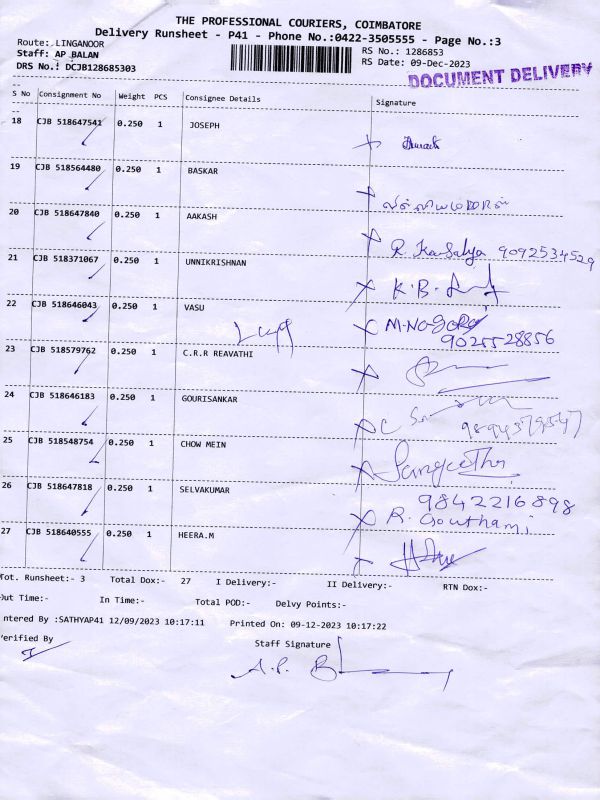 THE PROFESSIONAL COURIERS, COIMBATORE
Delivery Runsheet - P41 - Phone No.:0422-3505555 - Page No.:3
Route: LINGANOOR
RS No.: 1286853
Staff: AP BALAN
RS Date: 09-Dec-2023
DRS No.: DCJB128685303
DOCUMENT DELIVERY
S No Consignment No Weight PCS Consignee Details Signature
18 CJB 518647541 0.250 1 JOSEPH
19 CJB 518564480 0.250 1 BASKAR
20 CJB 518647840 0.250 1 AAKASH R. Kasalya 9092534529
21 CJB 518371067 0.250 1 UNNIKRISHNAN K.B.
22 CJB 518646043 0.250 1 VASU
9025528856
23 CJB 518579762 0.250 1 C.R.R REAVATHI
24 CJB 518646183 0.250 1 GOURISANKAR
25 CJB 518548754 0.250 1 CHOW MEIN Sangeetha
9842216898
26 CJB 518647818 0.250 1 SELVAKUMAR R. Gouthami
27 CJB 518640555 0.250 1 HEERA.M
Tot. Runsheet:- 3 Total Dox:- 27 I Delivery:- II Delivery:- RTN Dox:-
Out Time:- In Time:- Total POD:- Delvy Points:-
ntered By :SATHYAP41 12/09/2023 10:17:11 Printed On: 09-12-2023 10:17:22
Verified By Staff Signature
A.P. B